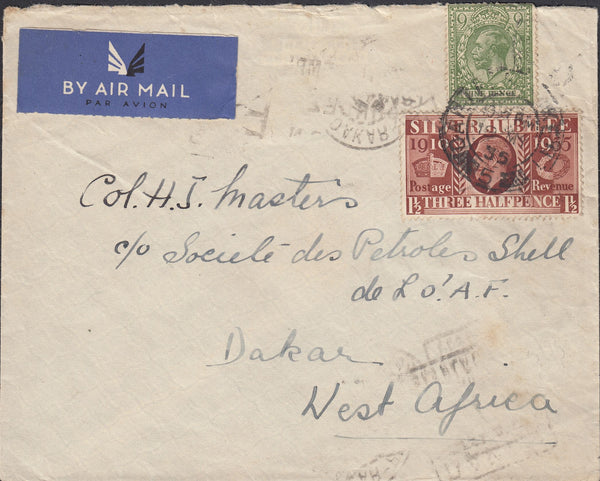 BY AIR MAIL
PAR AVION
9 9
NINE PENCE
SILVER JUBILEE
1910 1935
Postage Revenue
1½ THREE HALFPENCE 1½
Col. H. J. Masters
c/o Societé des Petroles Shell
de L'O.A.F.
Dakar
West Africa